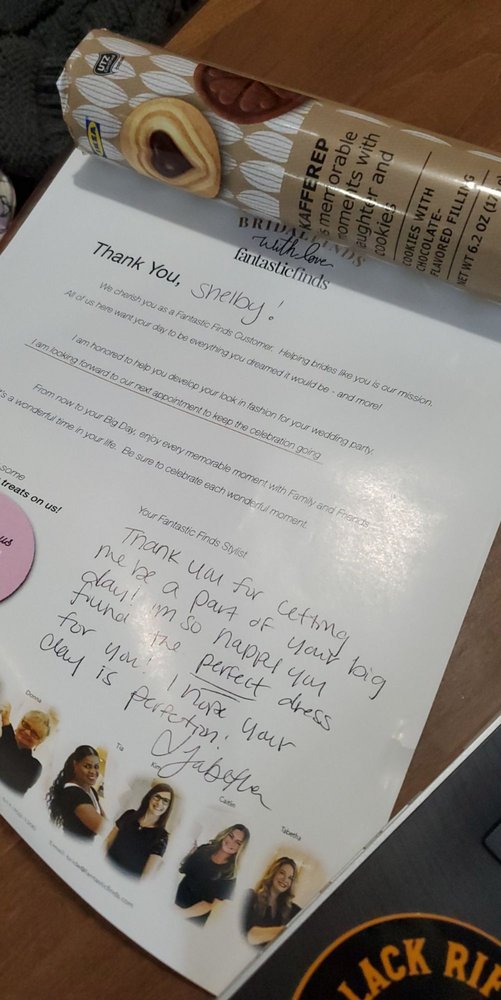 UTZ
IKEA
KAFFEREP
memorable
moments with
laughter and
cookies
COOKIES WITH
CHOCOLATE-
FLAVORED FILLING
NET WT 6.2 OZ
BRIDAL FINDS
with love
fantasticfinds
Thank You, Shelby!
We cherish you as a Fantastic Finds Customer. Helping brides like you is our mission.
All of us here want your day to be everything you dreamed it would be - and more!
I am honored to help you develop your look in fashion for your wedding party.
I am looking forward to our next appointment to keep the celebration going
From now to your Big Day, enjoy every memorable moment with Family and Friends.
a wonderful time in your life. Be sure to celebrate each wonderful moment.
some
treats on us!
us
Your Fantastic Finds Stylist
Thank you for letting
me be a part of your big
day! I'm so happy you
found the perfect dress
for you! I hope your
day is perfection!
Tabetha
Donna
Tia
Kim
Caitlin
Tabetha
BLACK RIF